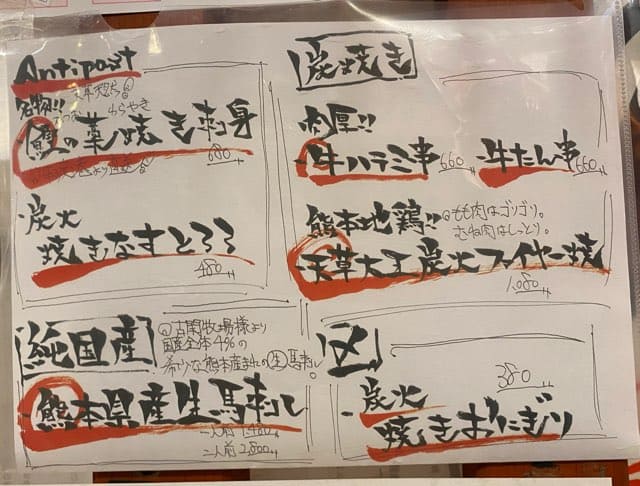 Antipast
名物!!
わらやき
鰹の藁焼き刺身
680
・炭火
焼きなすとろろ
480
炭焼き
肉厚!!
牛ハラミ串 660
・牛たん串 660
熊本地鶏!! @もも肉はゴリゴリ。
むね肉はしっとり。
天草大王 炭火ファイヤー焼
1,080
純国産
@古閑牧場様より
国産全体4%の
希少な熊本産まれの生馬刺し。
・熊本県産生馬刺し
一人前 1,480
二人前 2,800
〆
380
・炭火
焼きおにぎり